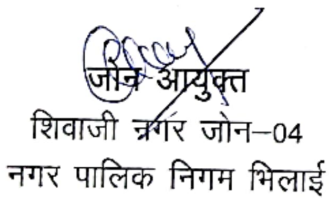 जोन आयुक्त
शिवाजी नगर जोन-04
नगर पालिक निगम भिलाई